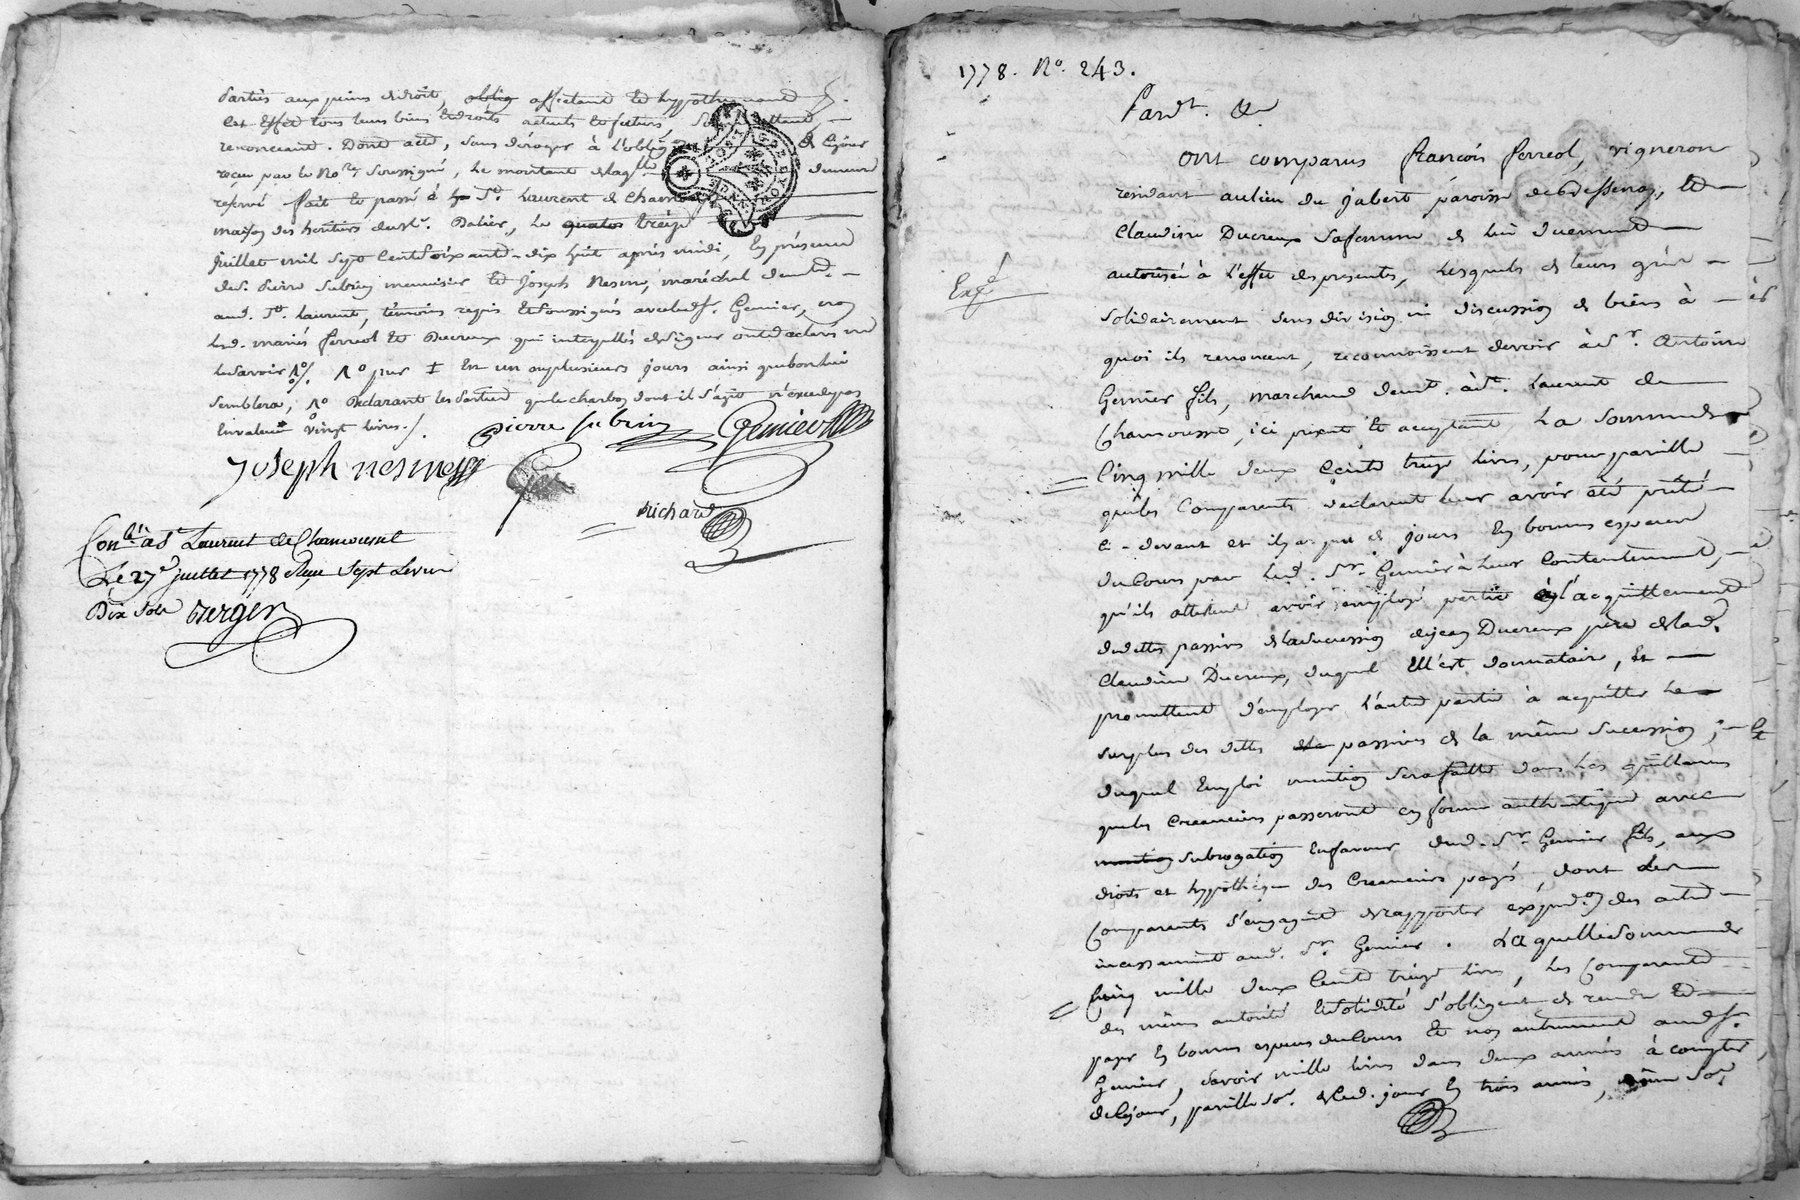 parties aux peines de droit, affectant et hypothequant
Cet Effet tous leurs biens et droits actuels et futurs,
renonceant. Dont acte, sans déroger à l'oblig de Cejour
reçue par le No.re Soussigné, Le montant de laq.lle demeure
reservé fait et passé à St. Laurent de Chamousset
maison des heritiers du Sr. Dalier, Le quatre treize
juillet mil Sept Cent Soixante-dix huit après midi, En présence
de Sr. Pierre Subrin menuisier et Joseph Nesme, maréchal demt.
aud. St. Laurent, témoins requis Et Soussignés avec led. Sr. Genier, non
Lesd. mariés ferreol et Ducreux qui interpellés de Signer ont declaré ne
le savoir /. No pur ‡ En un ou plusieurs jours ainsi que bon lui
Semblera, No Declarant les parties que le charbon dont il s'agit n'excede pas
En valeur vingt livres ./.
pierre subrin Genier
Joseph nesme
Richard
Con.lé à St Laurent de Chamousset
Le 27e juillet 1778 Reçu Sept Livres
Dix Sols Berger
1778. No. 243.
Pard.t &
Ont comparus françois ferreol, vigneron
residant au lieu du jabert paroisse de Bessenay, et
Claudine Ducreux Sa femme de lui duement
autorisée à l'effet des presentes, Lesquels de leurs grés
Exp.d
Solidairement sans division ni discussion de biens à
quoi ils renoncent, reconnoissent devoir à Sr. Antoine
Genier fils, marchand demt. à St. Laurent de
Chamousset, ici présent et acceptant, La Somme de
Cinq mille deux Cents treize livres, pour pareille
que les Comparants declarent leur avoir été prêtée
ci-devant et ce jour En bonnes especes
du Cours par led. Sr. Genier à leur Contentement,
qu'ils attestent avoir employé partie à l'acquittement
de dettes passives de la Succession de jean Ducreux père de lad.
Claudine Ducreux, duquel Elle est donnataire, Et
promettent d'employer l'autre partie à acquitter Le
surplus des dettes passives de la même Succession ; Et
duquel Emploi mention Sera faitte dans Les quittances
que les Creanciers passeront en forme authentique avec
mention Subrogation En faveur dud. Sr. Genier fils, aux
droits et hypothèque des Creanciers payés, dont les
Comparants s'engagent de rapporter expédon des actes
incessamment aud. Sr. Genier. Laquelle Somme de
Cinq mille deux Cents treize livres, les Comparants
des mêmes autorité Et solidité s'obligent de rendre et
payer En bonnes especes du Cours Et non autrement aud. Sr.
Genier, Savoir mille livres dans deux années à compter
de Cejour, pareille Some. dud. jour En trois années, même Some